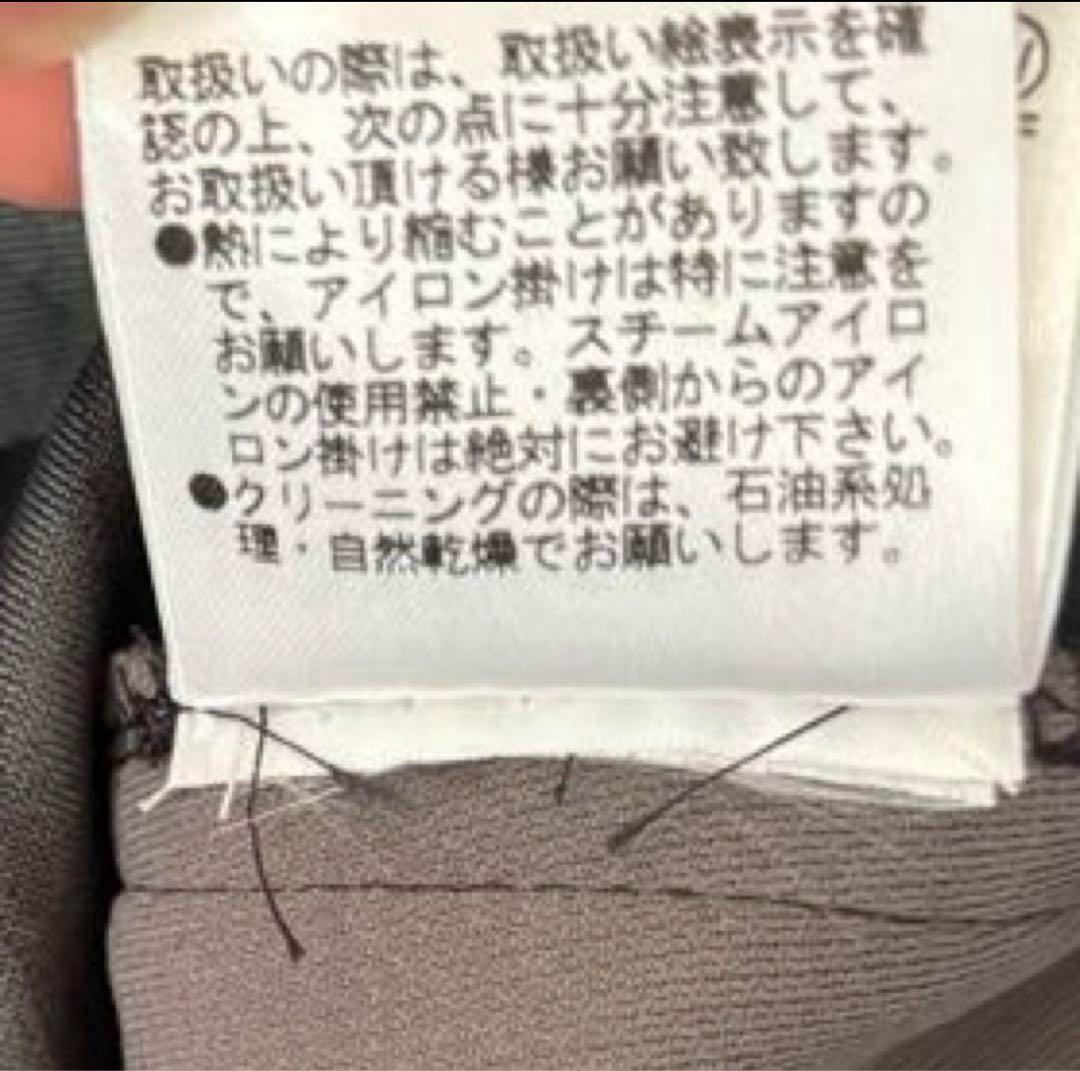 取扱いの際は、取扱い絵表示を確
認の上、次の点に十分注意して、
お取扱い頂ける様お願い致します。
●熱により縮むことがありますの
で、アイロン掛けは特に注意を
お願いします。スチームアイロ
ンの使用禁止・裏側からのアイ
ロン掛けは絶対にお避け下さい。
●クリーニングの際は、石油系処
理・自然乾燥でお願いします。